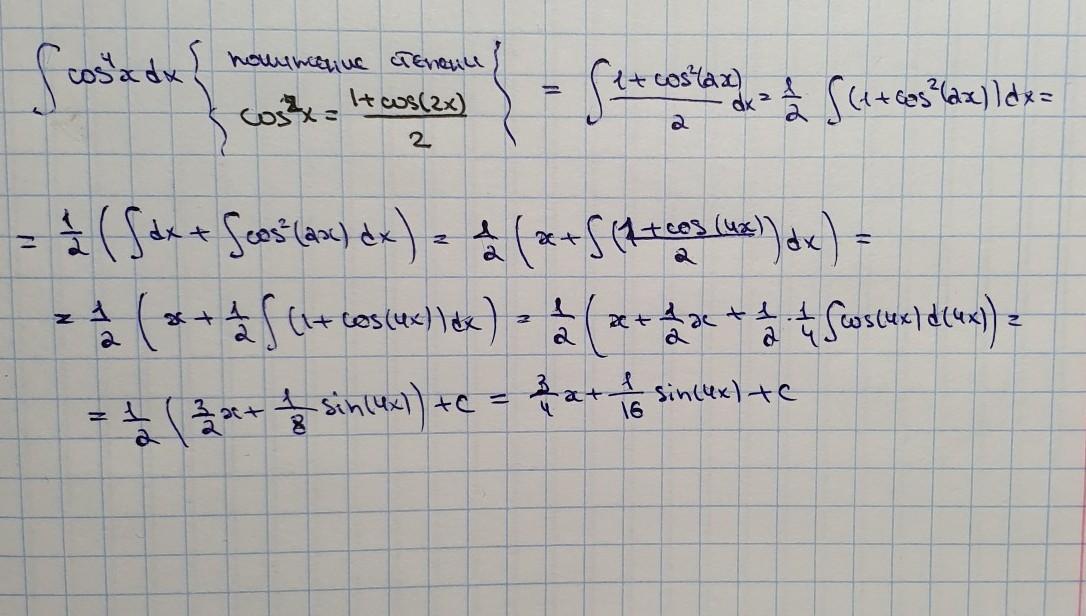 ∫ cos⁴x dx { понижение степени cos²x = (1 + cos(2x))/2 } = ∫ (1 + cos²(2x))/2 dx = 1/2 ∫ (1 + cos²(2x)) dx =
= 1/2 ( ∫ dx + ∫ cos²(2x) dx ) = 1/2 ( x + ∫ ((1 + cos(4x))/2) dx ) =
= 1/2 ( x + 1/2 ∫ (1 + cos(4x)) dx ) = 1/2 ( x + 1/2 x + 1/2 · 1/4 ∫ cos(4x) d(4x) ) =
= 1/2 ( 3/2 x + 1/8 sin(4x) ) + C = 3/4 x + 1/16 sin(4x) + C